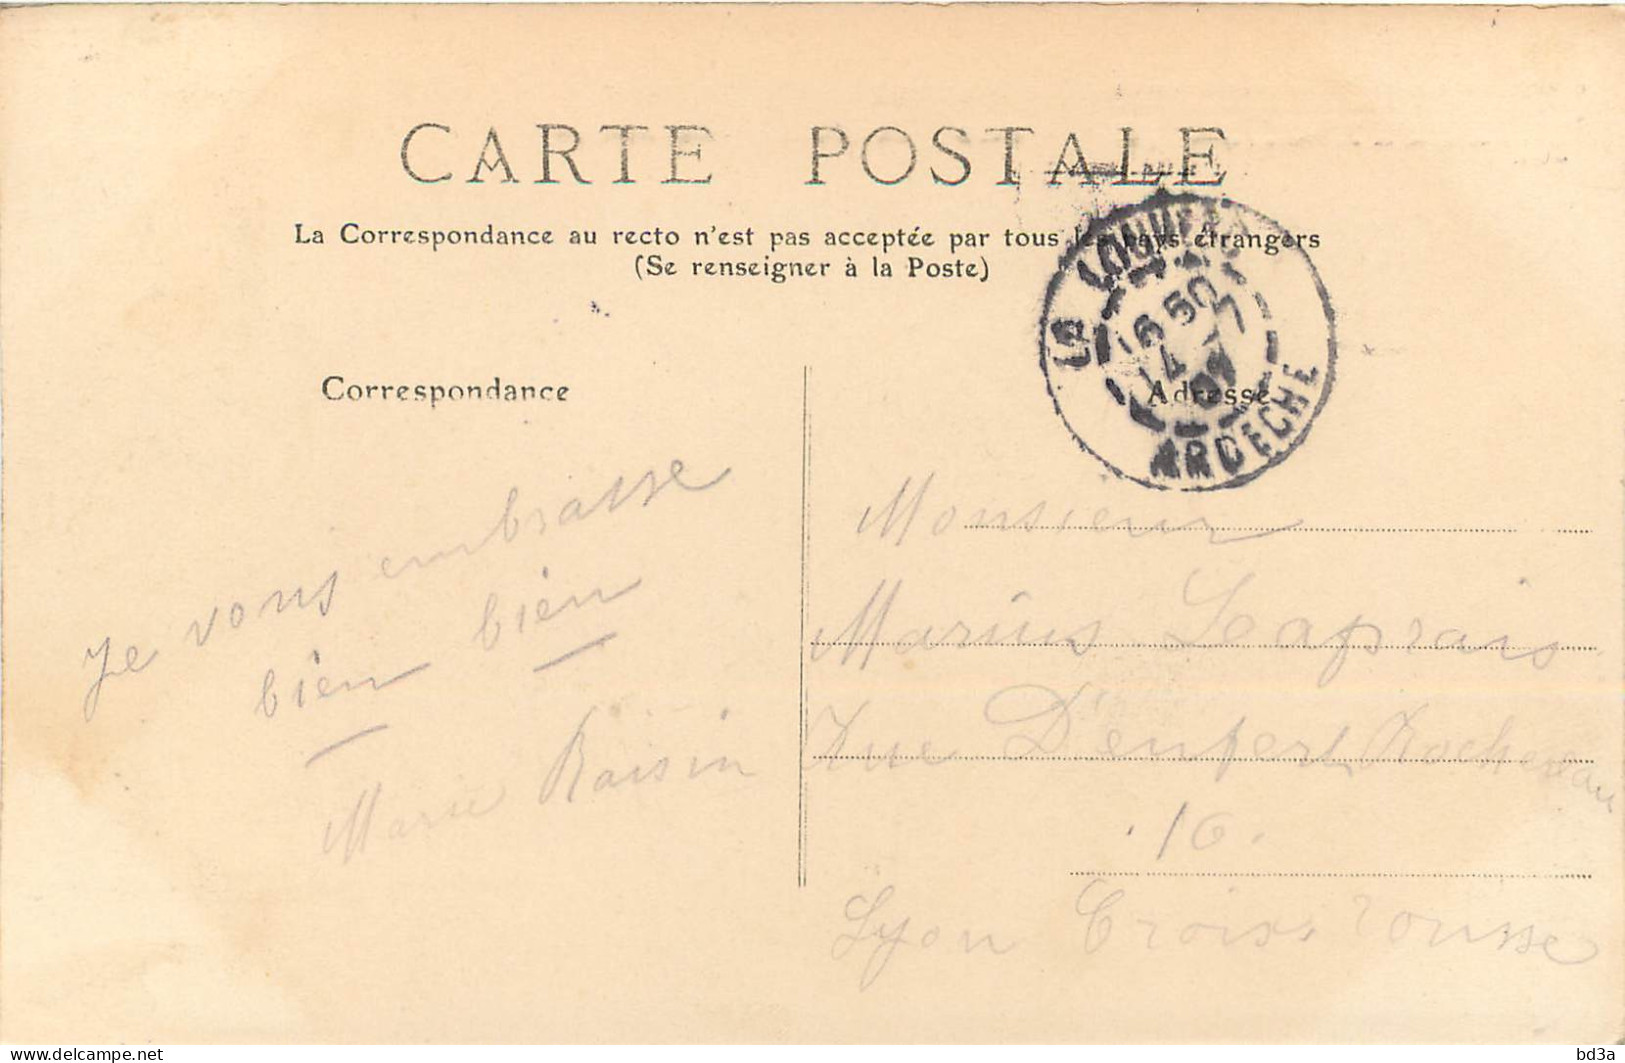 CARTE POSTALE
La Correspondance au recto n'est pas acceptée par tous les pays étrangers
(Se renseigner à la Poste)
LA LOUVESC
16 50
14 - 7
07
ARDECHE
Correspondance
Adresse
Je vous embrasse
bien bien
Marie Raisin
Monsieur
Marius Leaprais
Rue D'enfert Rochereau
.16.
Lyon Croix-rousse
bd3a